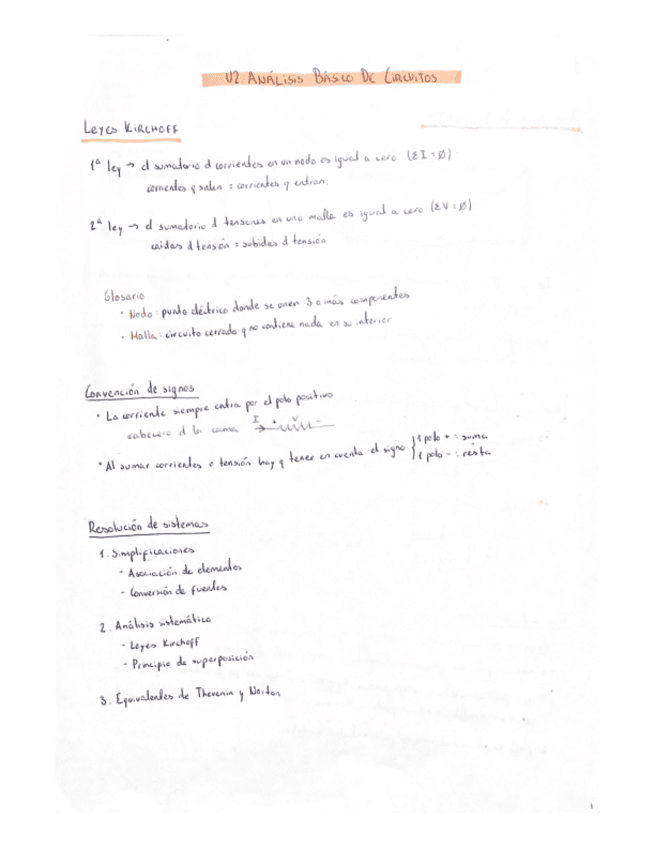 U2. ANÁLISIS BÁSICO DE CIRCUITOS
LEYES KIRCHOFF
1ª ley → el sumatorio d corrientes en un nodo es igual a cero (ΣI = Ø)
corrientes q salen = corrientes q entran.
2ª ley → el sumatorio d tensiones en una malla es igual a cero (ΣV = Ø)
caídas d tensión = subidas d tensión
Glosario
· Nodo: punto eléctrico donde se unen 3 o más componentes
· Malla: circuito cerrado q no contiene nada en su interior
Convención de signos
· La corriente siempre entra por el polo positivo
I + V -
· Al sumar corrientes o tensión hay q tener en cuenta el signo { 1 polo + : suma
1 polo - : resta
Resolución de sistemas
1. Simplificaciones
- Asociación de elementos
- Conversión de fuentes
2. Análisis sistemático
- Leyes Kirchoff
- Principio de superposición
3. Equivalentes de Thevenin y Norton